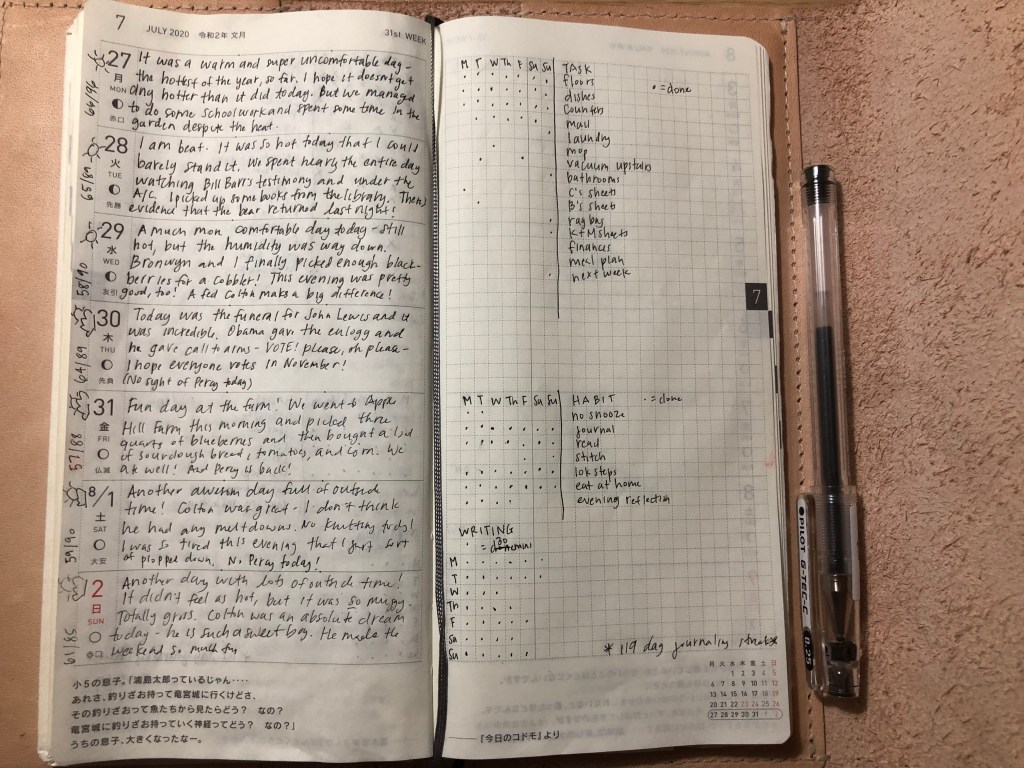 7
JULY 2020 令和2年 文月
31st WEEK
27
月
MON
赤口
66/96
It was a warm and super uncomfortable day -
the hottest of the year, so far. I hope it doesn't get
any hotter than it did today. But we managed
to do some schoolwork and spent some time in the
garden despite the heat.
28
火
TUE
先勝
65/89
I am beat. It was so hot today that I could
barely stand it. We spent nearly the entire day
watching Bill Barr's testimony and under the
A/C. I picked up some books from the library. Then,
evidence that the bear returned last night!
29
水
WED
友引
58/90
A much more comfortable day today - still
hot, but the humidity was way down.
Bronwyn and I finally picked enough black-
berries for a cobbler! This evening was pretty
good, too! A fed Colton makes a big difference!
30
木
THU
先負
64/89
Today was the funeral for John Lewis and it
was incredible. Obama gave the eulogy and
he gave call to arms - VOTE! please, oh please -
I hope everyone votes in November!
(No sight of Percy today)
31
金
FRI
仏滅
57/88
Fun day at the farm! We went to Apple
Hill Farm this morning and picked three
quarts of blueberries and then bought a load
of sourdough bread, tomatoes, and corn. We
ate well! And Percy is back!
8/1
土
SAT
大安
59/90
Another awesome day full of outside
time! Colton was great - I don't think
he had any meltdowns. No knitting today!
I was so tired this evening that I just sort
of plopped down. No Percy today!
2
日
SUN
赤口
61/85
Another day with lots of outside time!
It didn't feel as hot, but it was so muggy.
Totally gross. Colton was an absolute dream
today - he is such a sweet boy. He made the
weekend so much fun
小5の息子。「浦島太郎っているじゃん‥‥
あれさ、釣りざお持って竜宮城に行くけどさ、
その釣りざおって魚たちから見たらどう？ なの？
竜宮城に釣りざお持っていく神経ってどう？ なの？」
うちの息子、大きくなったなー。
M T W Th F Sa Su TASK
floors
• = done
dishes
counters
mail
laundry
mop
vacuum upstairs
bathrooms
C's sheets
B's sheets
rag bag
K+M sheets
finances
meal plan
next week
7
M T W Th F Sa Su HABIT • = done
no snooze
journal
read
stitch
10k steps
eat at home
evening reflection
WRITING
• = 30 min
M
T
W
Th
F
Sa
Su
* 119 day journaling streak *
月 火 水 木 金 土 日
1 2 3 4 5
6 7 8 9 10 11 12
13 14 15 16 17 18 19
20 21 22 23 24 25 26
27 28 29 30 31 1 2
──『今日のコドモ』より
PILOT G-TEC-C
0.25